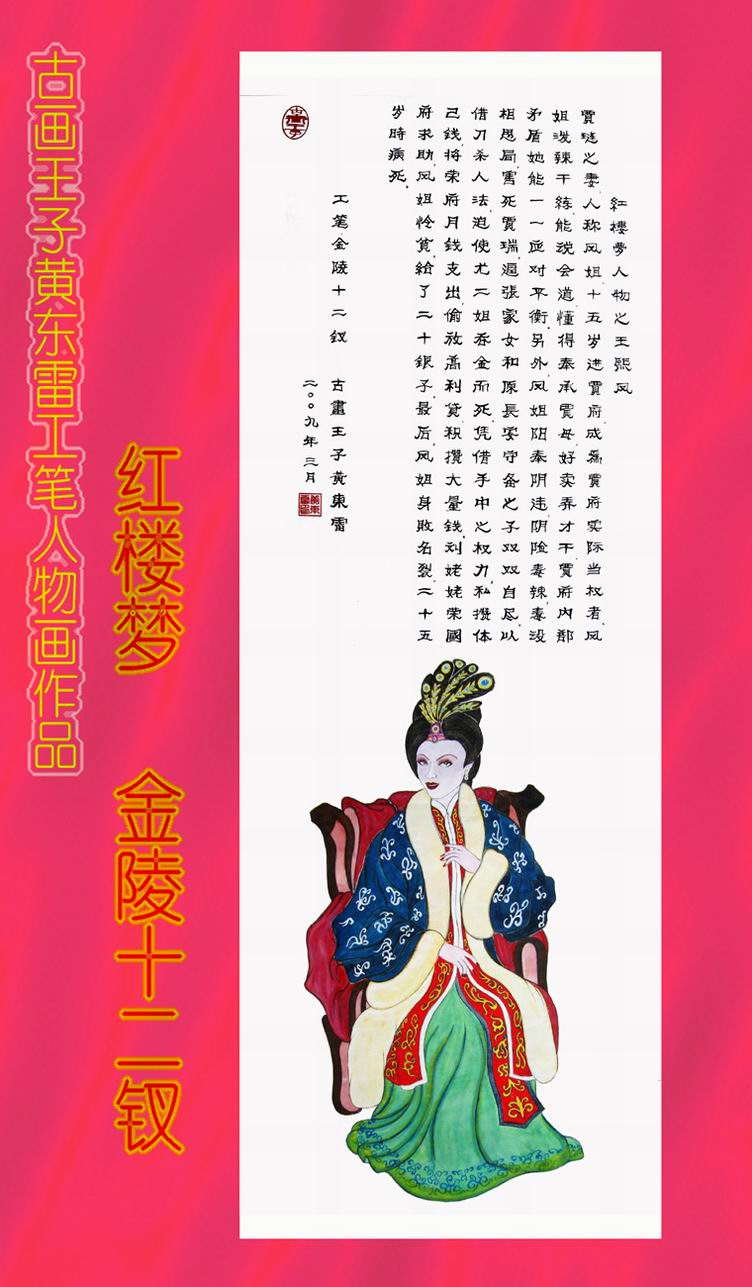 古画王子黄东雷工笔人物画作品
红楼梦 金陵十二钗
紅樓夢人物之王熙凤
賈琏之妻人称凤姐十五岁进賈府成爲賈府实际当权者凤
姐泼辣干练能说会道懂得奉承賈母好卖弄才干賈府内部
矛盾她能一一应对平衡另外凤姐阳奉阴违阴险毒辣毒设
相思局害死賈瑞逼張家女和原長安守备之子双双自尽以
借刀杀人法迫使尤二姐吞金而死凭借手中之权力私攒体
己錢将荣府月錢支出偷放高利貸积攢大量錢刘姥姥荣國
府求助凤姐怜貧給了二十銀子最后凤姐身敗名裂二十五
岁時病死.
工笔金陵十二釵 古畫王子黃東雷
二〇〇九年三月